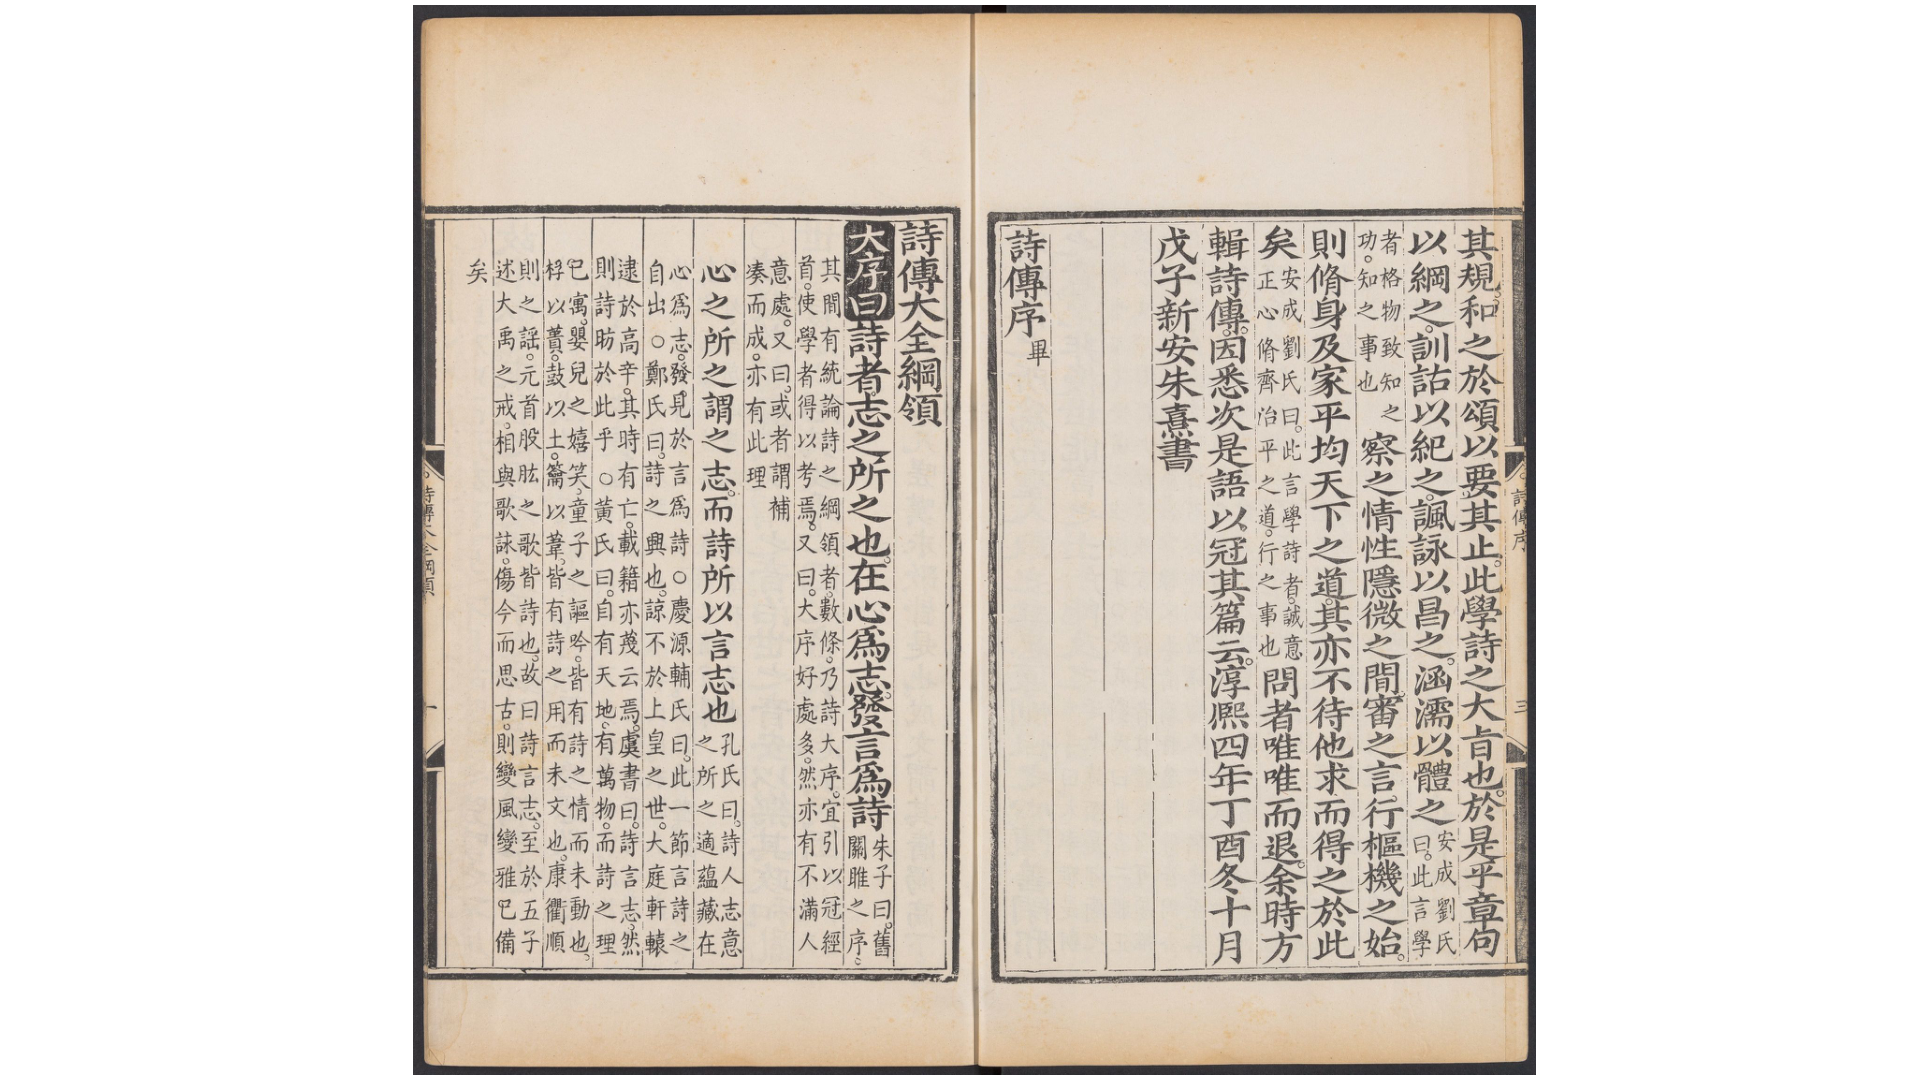 其規。和之於頌以要其止。此學詩之大㫖也。於是乎章句
以綱之。訓詁以紀之。諷詠以昌之。涵濡以體之
安成劉氏
曰。此言學
者格物致知之
功。知之事也
察之情性隱微之間。審之言行樞機之始。
則脩身及家平均天下之道。其亦不待他求而得之於此
矣
安成劉氏曰。此言學詩者。誠意
正心脩齊治平之道。行之事也
問者唯唯而退。余時方
輯詩傳。因悉次是語以冠其篇云。淳熈四年丁酉冬十月
戊子新安朱熹書
詩傳序畢
詩傳序
三
詩傳大全綱領
大序曰詩者。志之所之也。在心爲志。發言爲詩
朱子曰。舊
關雎之序。
其間有統論詩之綱領者。數條。乃詩大序。宜引以冠經
首。使學者得以考焉。又曰。大序好處多。然亦有不滿人
意處。又曰。或者謂補
湊而成。亦有此理
心之所之謂之志。而詩所以言志也
孔氏曰。詩人志意
之所之適蘊藏在
心爲志。發見於言爲詩○慶源輔氏曰。此一節言詩之
自出○鄭氏曰。詩之興也。諒不於上皇之世。大庭軒轅
逮於高辛。其時有亡。載籍亦蔑云焉。虞書曰。詩言志。然
則詩昉於此乎○黃氏曰。自有天地。有萬物。而詩之理
已寓。嬰兒之嬉笑。童子之謳吟。皆有詩之情而未動也。
桴以蕢。鼓以土。籥以葦。皆有詩之用而未文也。康衢順
則之謡。元首股肱之歌。皆詩也。故曰詩言志。至於五子
述大禹之戒。相與歌詠。傷今而思古。則變風變雅已備
矣
詩傳大全綱領
一